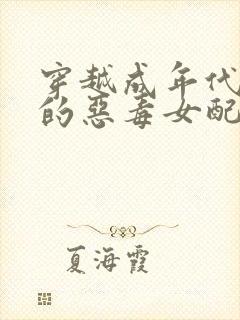 穿越成年代
的恶毒女配
夏海霞